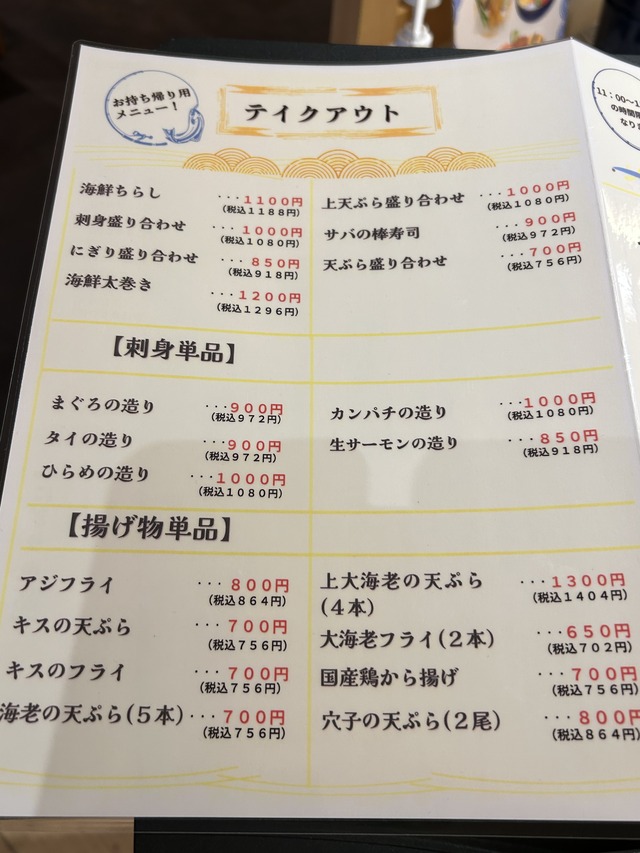 お持ち帰り用
メニュー！
テイクアウト
海鮮ちらし ・・・１１００円
（税込１１８８円）
刺身盛り合わせ ・・・１０００円
（税込１０８０円）
にぎり盛り合わせ ・・・８５０円
（税込９１８円）
海鮮太巻き ・・・１２００円
（税込１２９６円）
上天ぷら盛り合わせ ・・・１０００円
（税込１０８０円）
サバの棒寿司 ・・・９００円
（税込９７２円）
天ぷら盛り合わせ ・・・７００円
（税込７５６円）
【刺身単品】
まぐろの造り ・・・９００円
（税込９７２円）
タイの造り ・・・９００円
（税込９７２円）
ひらめの造り ・・・１０００円
（税込１０８０円）
カンパチの造り ・・・１０００円
（税込１０８０円）
生サーモンの造り ・・・８５０円
（税込９１８円）
【揚げ物単品】
アジフライ ・・・８００円
（税込８６４円）
キスの天ぷら ・・・７００円
（税込７５６円）
キスのフライ ・・・７００円
（税込７５６円）
海老の天ぷら(５本) ・・・７００円
（税込７５６円）
上大海老の天ぷら ・・・１３００円
(４本) （税込１４０４円）
大海老フライ(２本) ・・・６５０円
（税込７０２円）
国産鶏から揚げ ・・・７００円
（税込７５６円）
穴子の天ぷら(２尾) ・・・８００円
（税込８６４円）
１１：００～１
の時間
なり